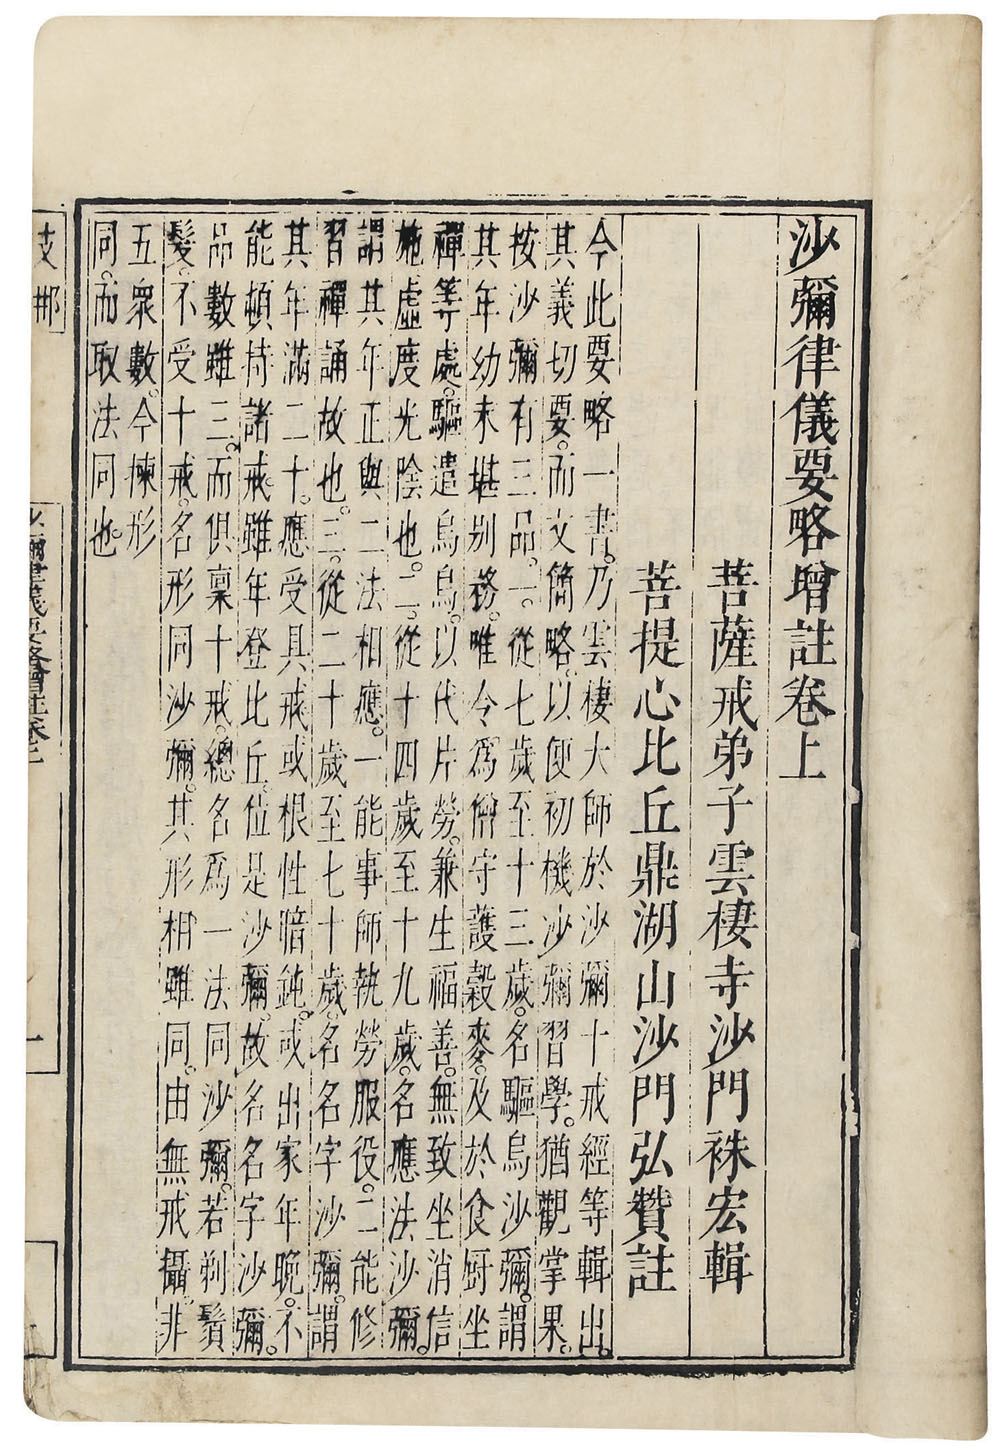 沙彌律儀要略增註卷上
菩薩戒弟子雲棲寺沙門袾宏輯
菩提心比丘鼎湖山沙門弘贊註
今此要略一書。乃雲棲大師於沙彌十戒經等輯出。
其義切要。而文簡略。以便初機沙彌習學。猶觀掌果。
按沙彌有三品。一。從七歲至十三歲。名驅烏沙彌。謂
其年幼未堪別務。唯令爲僧守護穀麥。及於食厨坐
禪等處。驅遣烏鳥。以代片勞。兼生福善。無致坐消信
施虛度光陰也。二。從十四歲至十九歲。名應法沙彌。
謂其年正與二法相應。一能事師執勞服役。二能修
習禪誦故也。三。從二十歲至七十歲。名名字沙彌。謂
其年滿二十。應受具戒或根性暗鈍。或出家年晚。不
能頓持諸戒。雖年登比丘。位是沙彌。故名名字沙彌。
品數雖三。而俱稟十戒。總名爲一法同沙彌。若剃鬚
髮。不受十戒。名形同沙彌。其形相雖同。由無戒攝。非
五眾數。今揀形
同。而取法同也。
支那